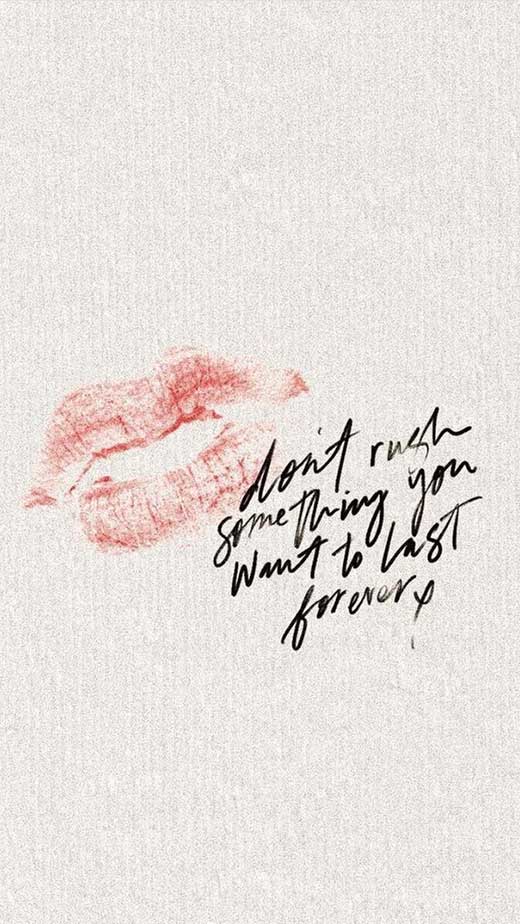 don't rush
something you
want to last
forever x